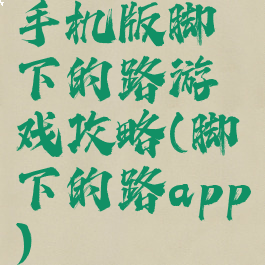 手机版脚
下的路游
戏攻略(脚
下的路app
)